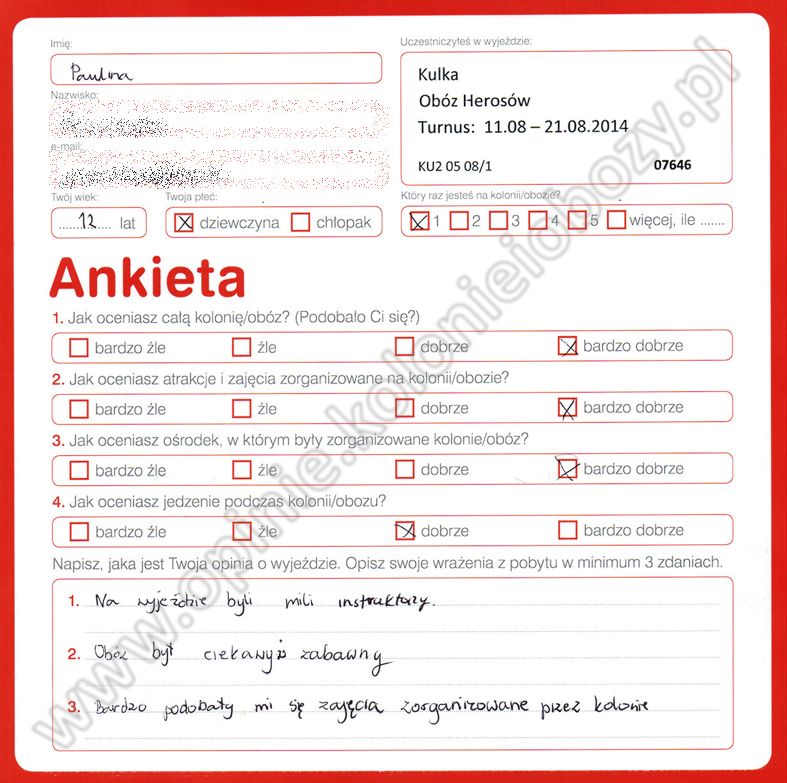 Imię:
Paulina
Nazwisko:
e-mail:
Twój wiek:
12 lat
Twoja płeć:
dziewczyna chłopak
Uczestniczyłeś w wyjeździe:
Kulka
Obóz Herosów
Turnus: 11.08 – 21.08.2014
KU2 05 08/1 07646
Który raz jesteś na kolonii/obozie?
1 2 3 4 5 więcej, ile .......
Ankieta
1. Jak oceniasz całą kolonię/obóz? (Podobało Ci się?)
bardzo źle źle dobrze bardzo dobrze
2. Jak oceniasz atrakcje i zajęcia zorganizowane na kolonii/obozie?
bardzo źle źle dobrze bardzo dobrze
3. Jak oceniasz ośrodek, w którym były zorganizowane kolonie/obóz?
bardzo źle źle dobrze bardzo dobrze
4. Jak oceniasz jedzenie podczas kolonii/obozu?
bardzo źle źle dobrze bardzo dobrze
Napisz, jaka jest Twoja opinia o wyjeździe. Opisz swoje wrażenia z pobytu w minimum 3 zdaniach.
1. Na wyjeździe byli mili instruktorzy.
2. Obóz był ciekawy i zabawny
3. Bardzo podobały mi się zajęcia zorganizowane przez kolonie
www.opinie.kolonieiobozy.pl